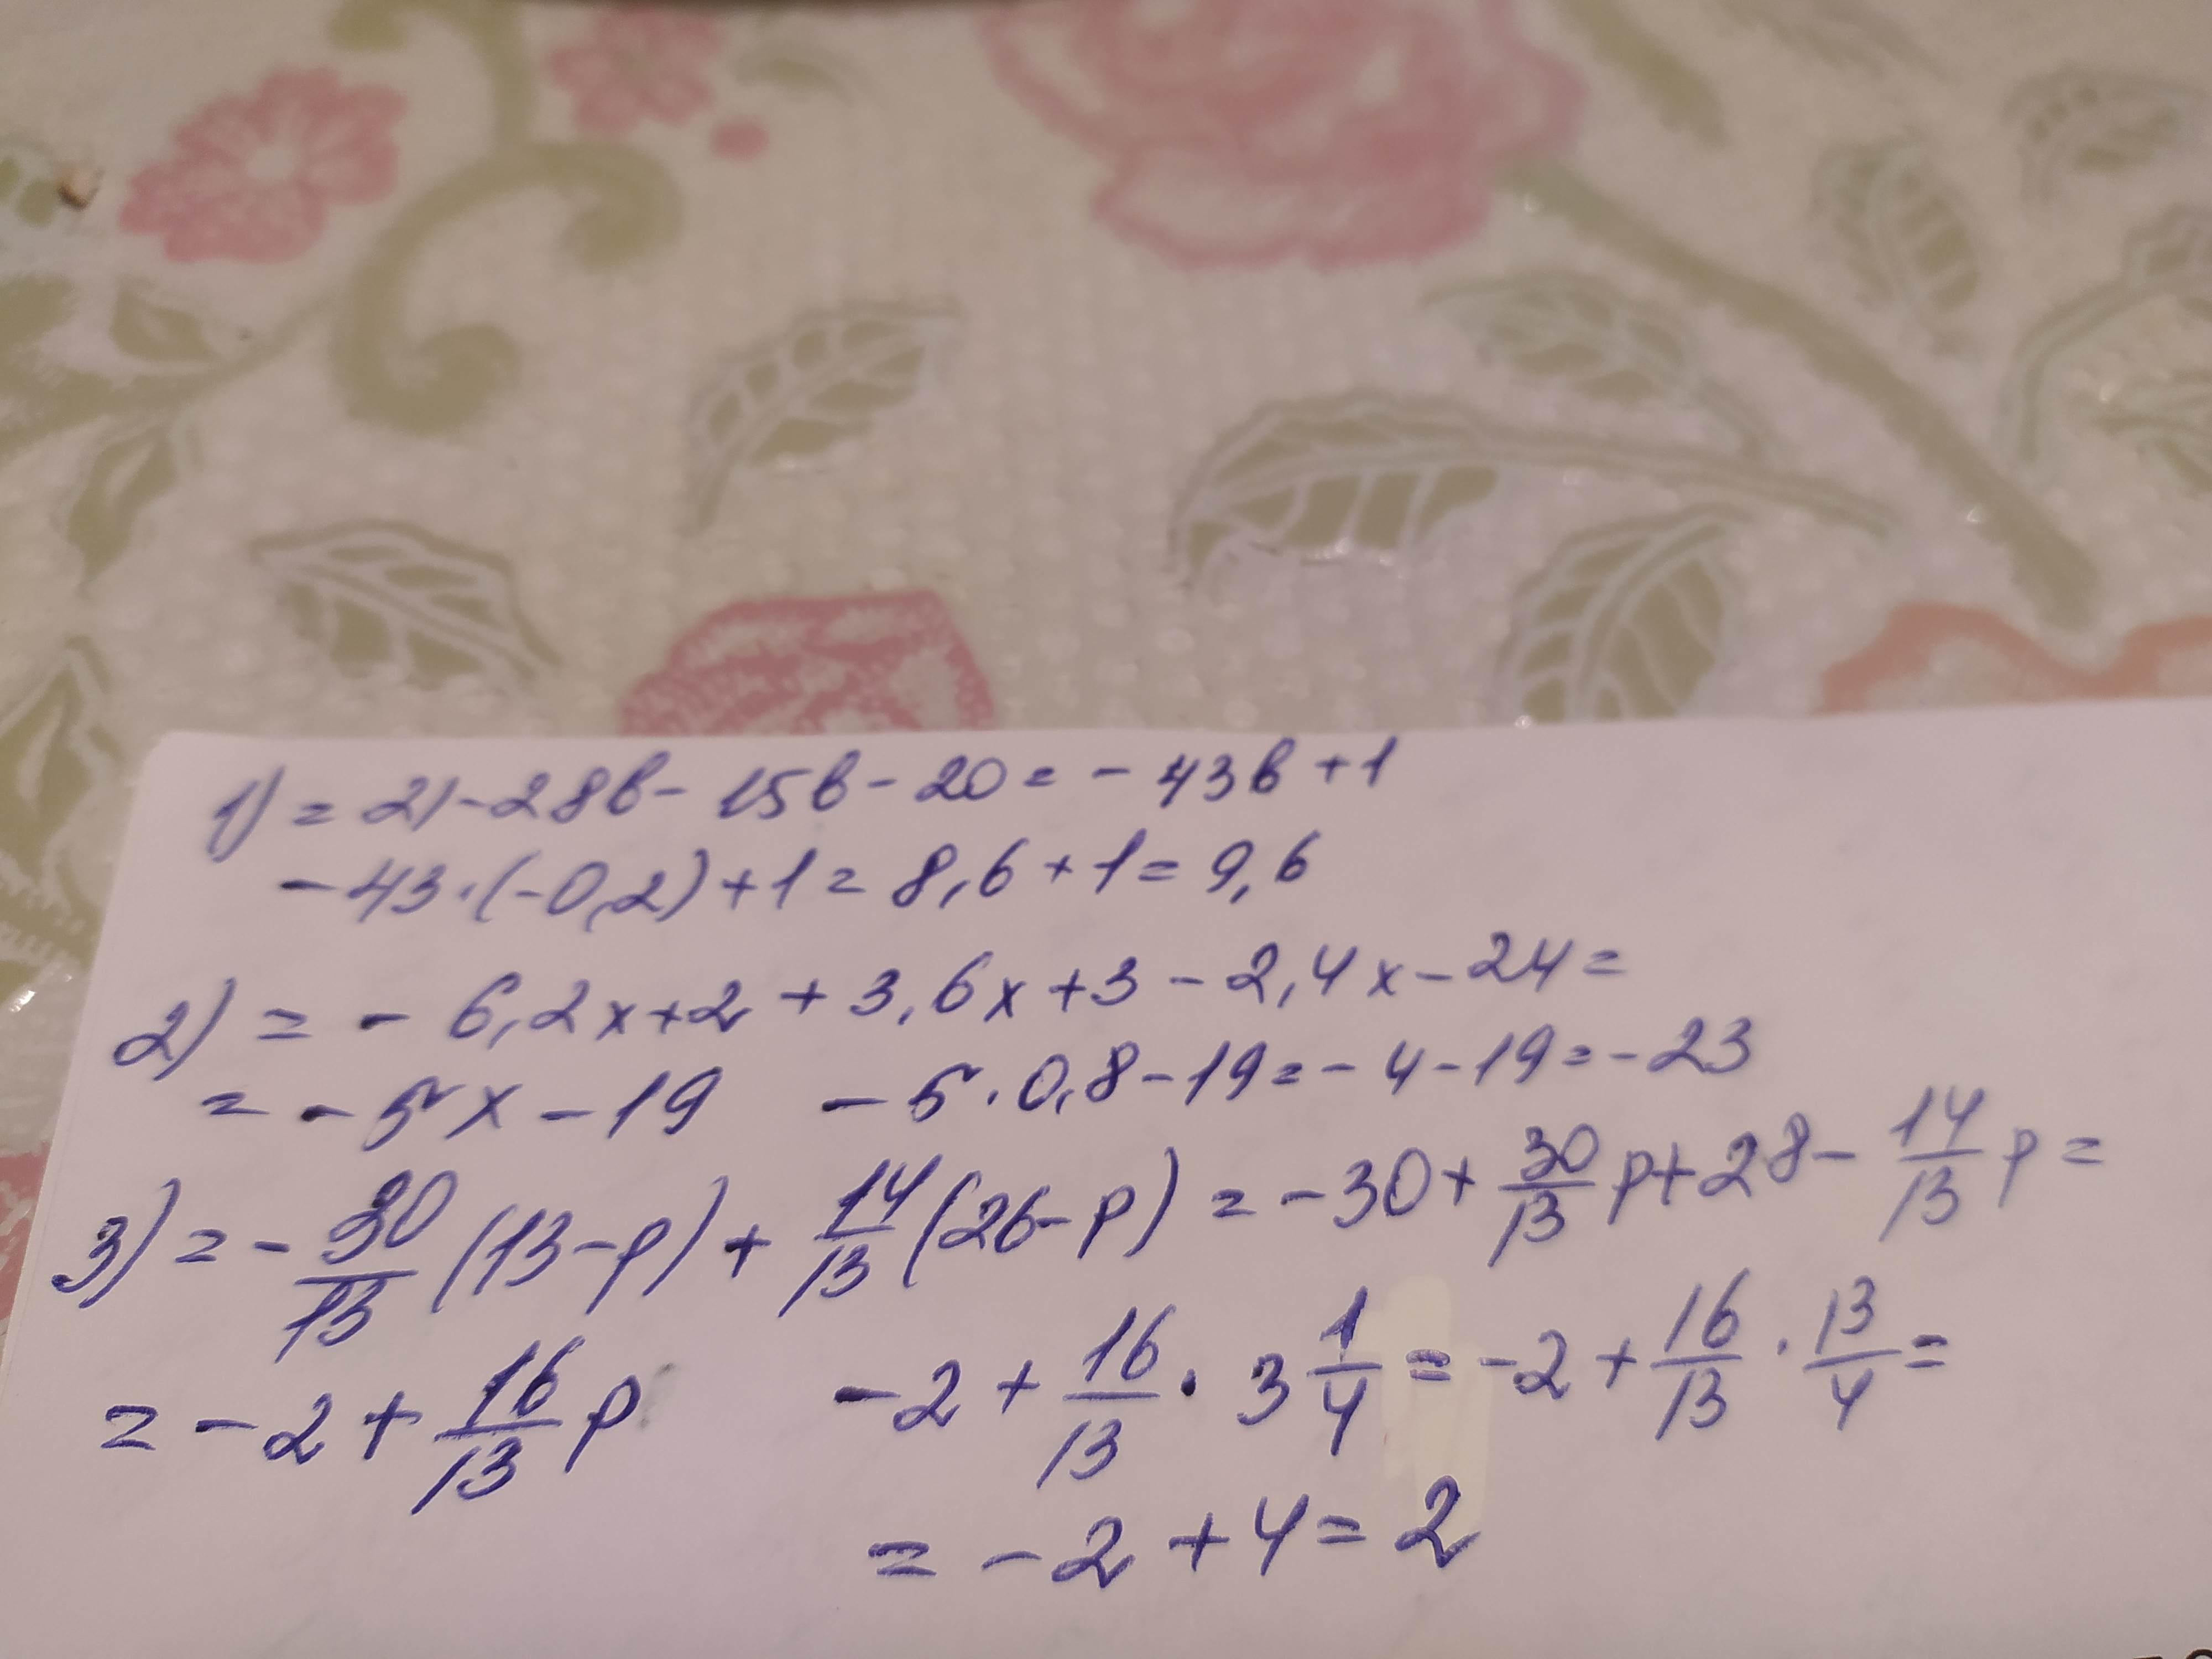 1) = 21-28b-15b-20 = -43b+1
-43·(-0,2)+1 = 8,6+1 = 9,6
2) = -6,2x+2+3,6x+3-2,4x-24 =
= -5x-19 -5·0,8-19 = -4-19 = -23
3) = -30/13(13-p)+14/13(26-p) = -30+30/13p+28-14/13p =
= -2+16/13p -2+16/13·3 1/4 = -2+16/13·13/4 =
= -2+4 = 2